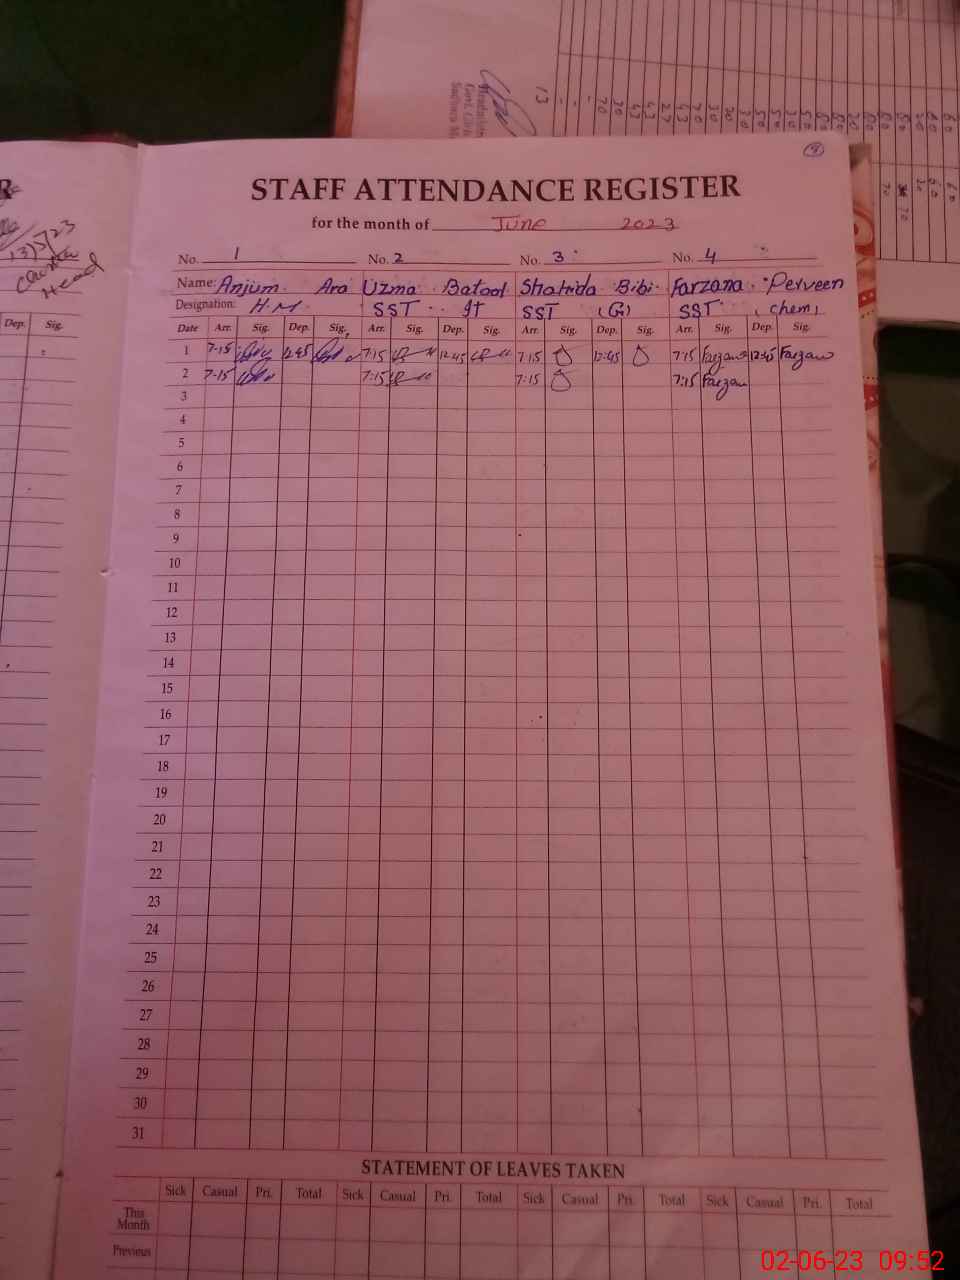 9
STAFF ATTENDANCE REGISTER
for the month of June 2023
No. 1 No. 2 No. 3 No. 4
Name: Anjum Ara Uzma Batool Shahida Bibi Farzana Perveen
Designation: H.M SST IT SST (G) SST (chem)
Date Arr. Sig. Dep. Sig. Arr. Sig. Dep. Sig. Arr. Sig. Dep. Sig. Arr. Sig. Dep. Sig.
1 7-15 12:45 7:15 12:45 7:15 12:45 7:15 Farzana 12:45 Farzana
2 7-15 7:15 7:15 7:15 Farzana
3
4
5
6
7
8
9
10
11
12
13
14
15
16
17
18
19
20
21
22
23
24
25
26
27
28
29
30
31
STATEMENT OF LEAVES TAKEN
Sick Casual Pri. Total Sick Casual Pri. Total Sick Casual Pri. Total Sick Casual Pri. Total
This
Month
Previous
R
13/5/23
Head
Dep. Sig.
02-06-23 09:52